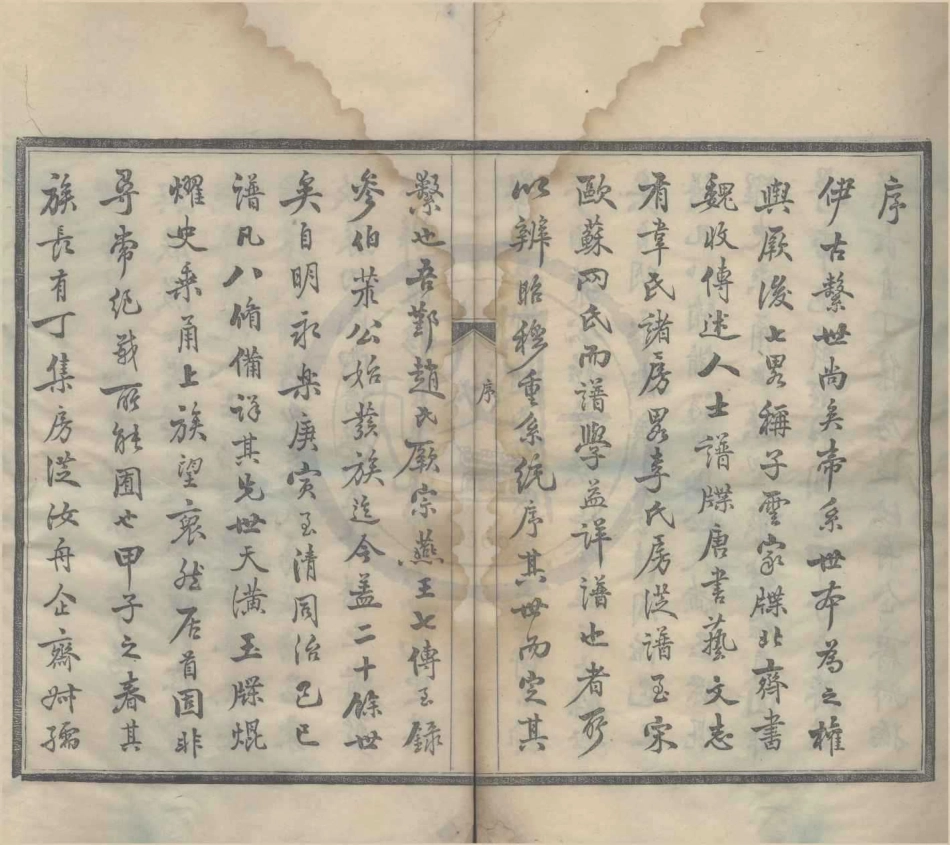 序
伊古繫世尚矣帝系世本為之權
輿厥後七畧稱子雲家牒北齊書
魏收傳述人士譜牒唐書藝文志
有韋氏諸房畧李氏房從譜至宋
歐蘇两氏而譜學益詳譜也者所
以辨昭穆重系統序其世而定其
序
繫也吾鄞趙氏厥宗燕王七傳至錄
參伯公始發族迄今盖二十餘世
矣自明永樂庚寅至清同治己巳
譜凡八脩備詳其先世天潢玉牒焜
燿史乘甬上族望裒然居首固非
尋常紀載所能囿也甲子之春其
族長有丁集房從汝舟企齋